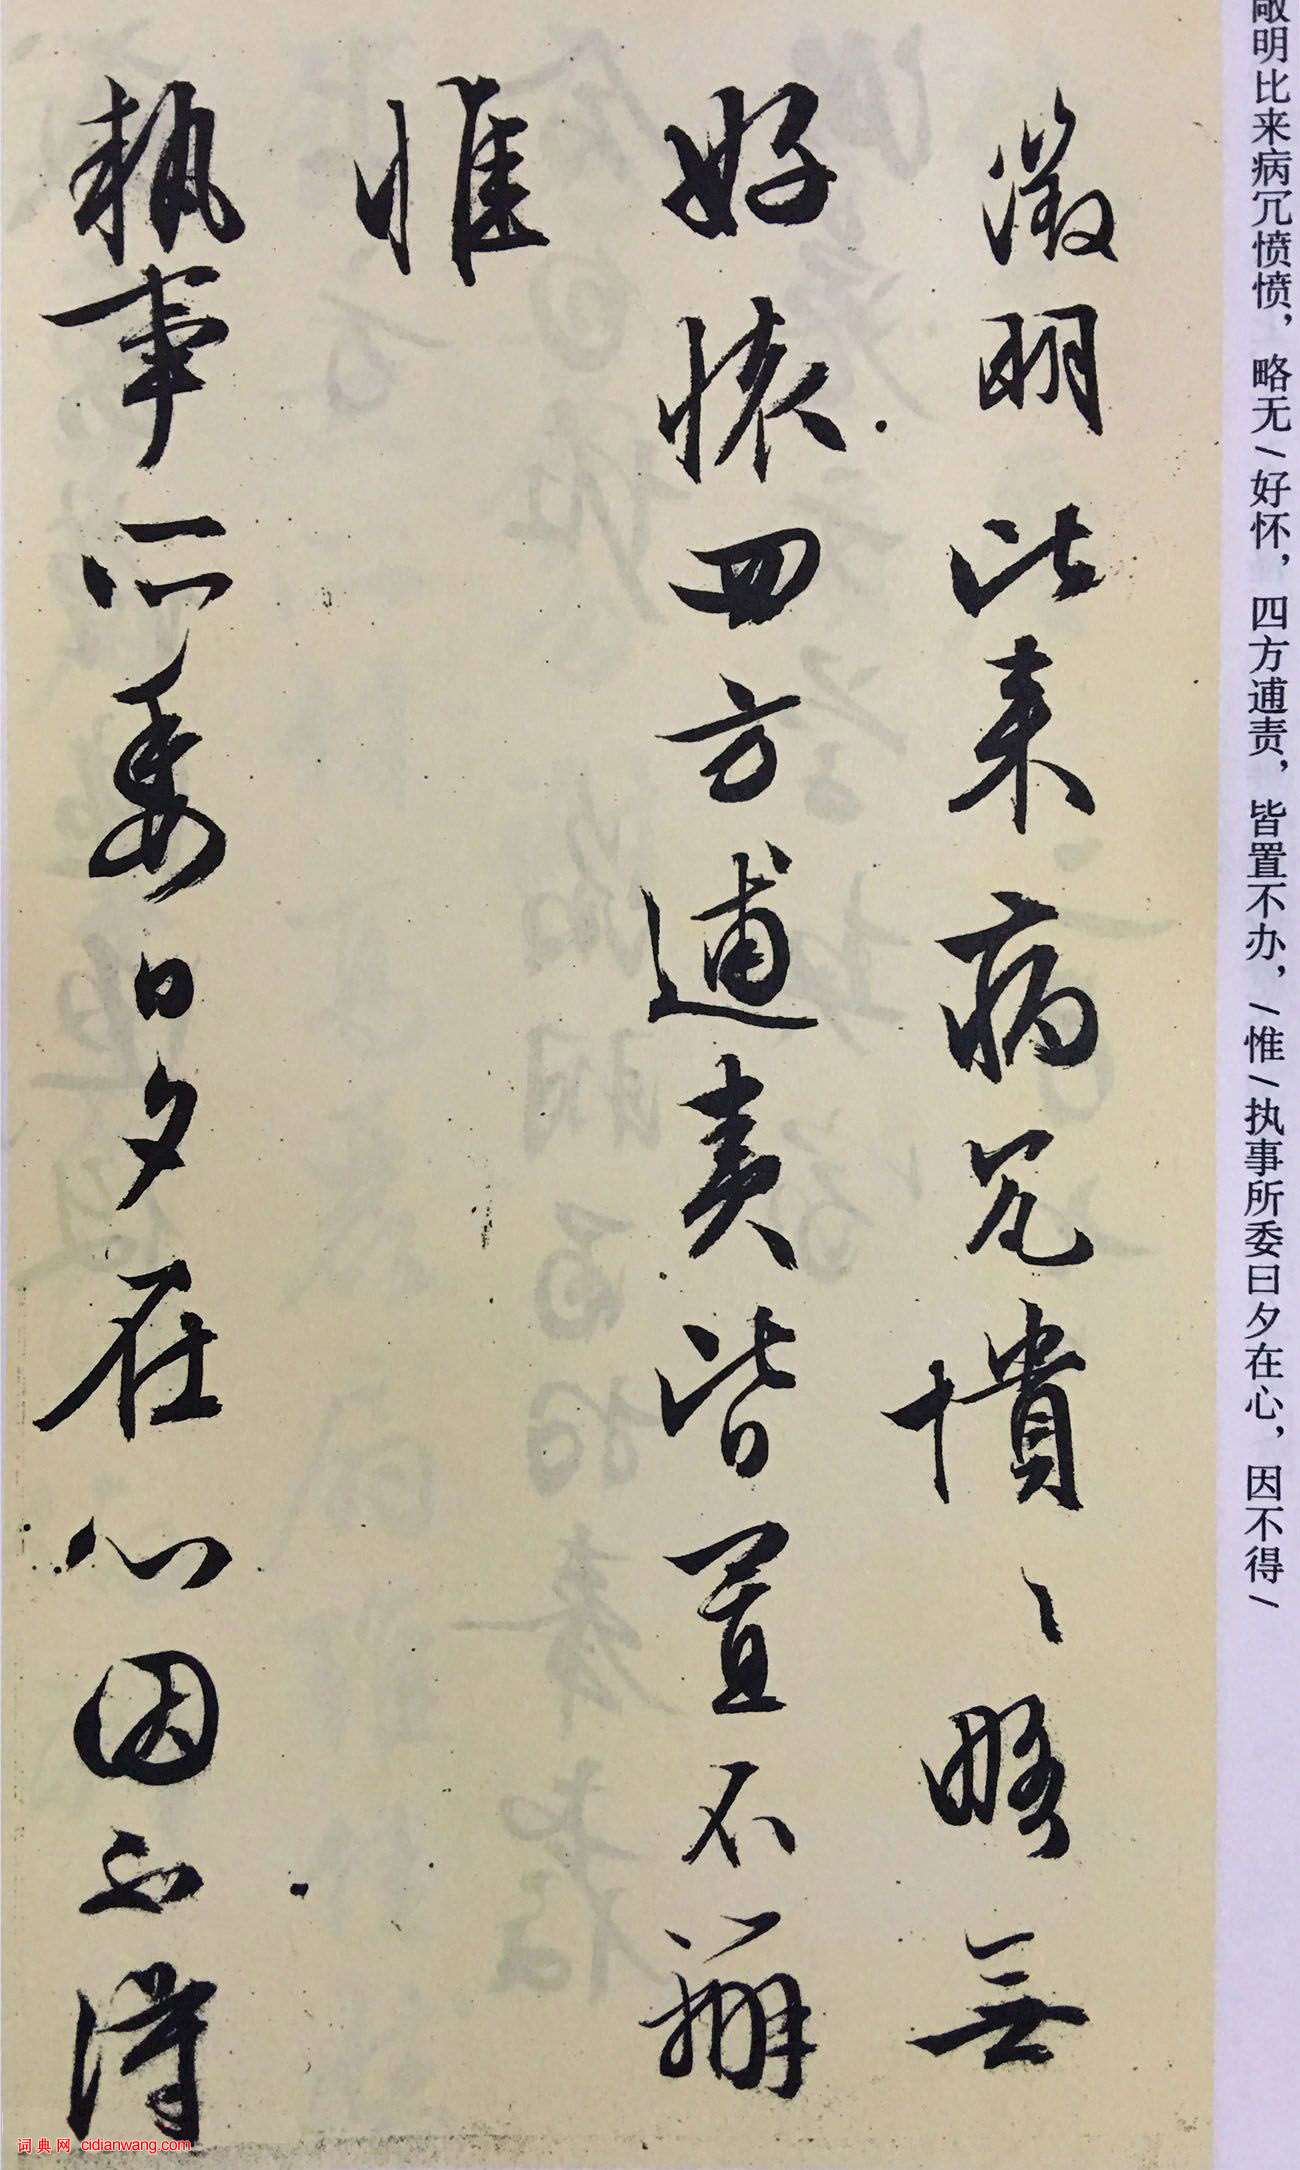 敞明比来病冗愤愤，略无/好怀，四方逋责，皆置不办，/惟/执事所委日夕在心，因不得/
徵明比来病冗愦〻略無
好懷四方逋責皆置不辦
惟
執事所委日夕在心因不得
词典网 cidianwang.com